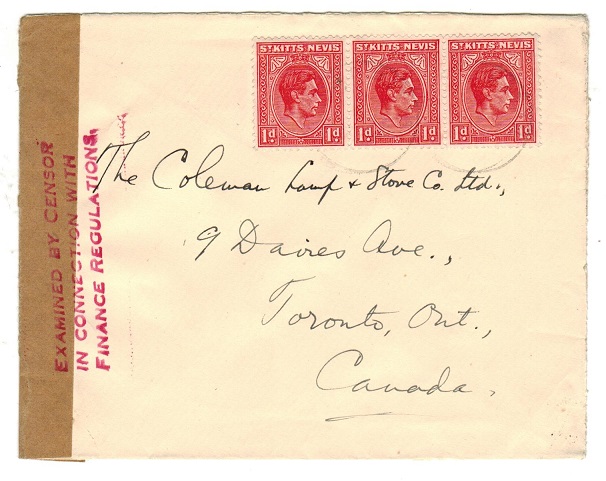 ST KITTS-NEVIS ST KITTS-NEVIS ST KITTS-NEVIS
1d 1d 1d 1d 1d 1d
EXAMINED BY CENSOR
IN CONNECTION WITH
FINANCE REGULATIONS.
The Coleman Lamp & Stove Co. Ltd.,
9 Davies Ave.,
Toronto, Ont.,
Canada.